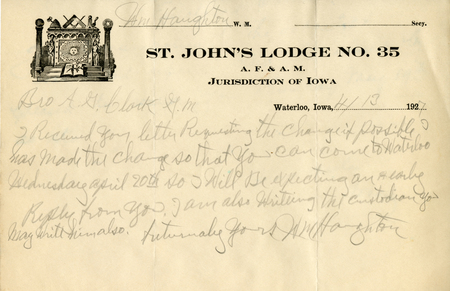 Wm Haughton W. M. Secy.
ST. JOHN'S LODGE NO. 35
A. F. & A. M.
JURISDICTION OF IOWA
Waterloo, Iowa, 4/13 1927
Bro A. G. Clark G. M
I Received your letter Requesting the change if possible, I
has made the change so that you can come to Waterloo
Wednesday april 20th so I will Be expecting an early
Reply from You. I am also writing the custodian You
May writ him also. Fraternaly Yours Wm Haughton